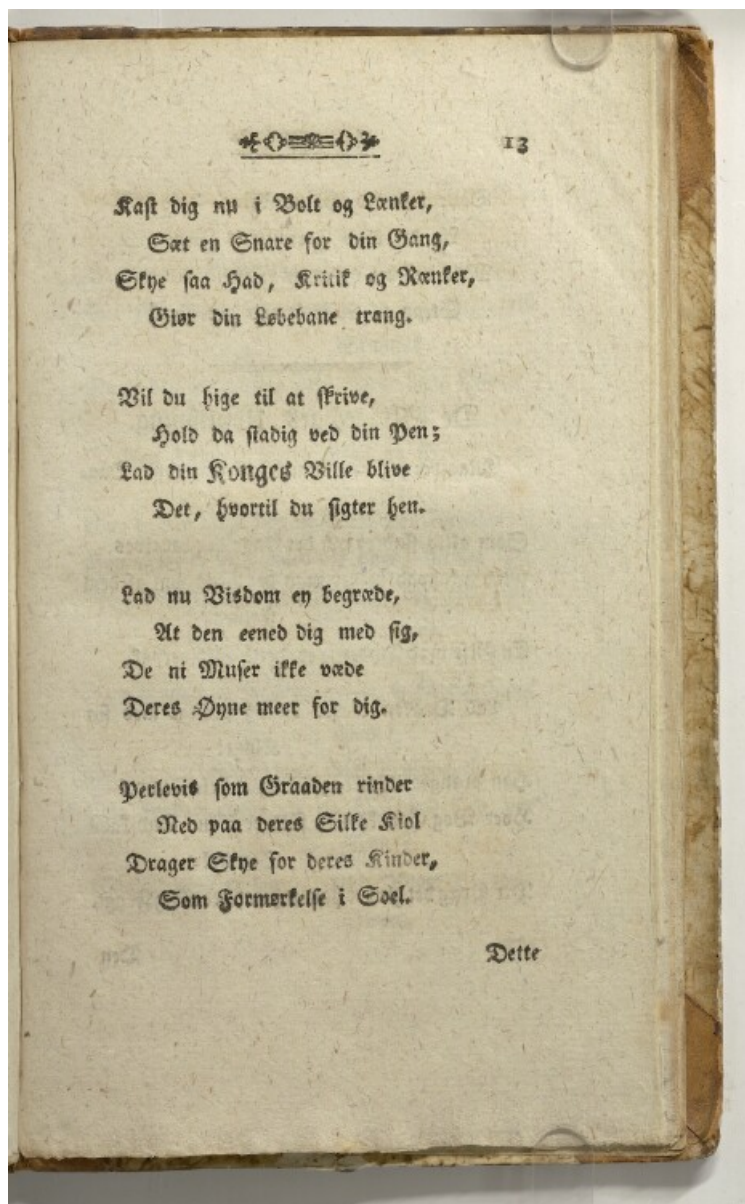 13
Kast dig nu i Bolt og Lænker,
Sæt en Snare for din Gang,
Skye saa Had, Kritik og Rænker,
Giør din Løbebane trang.
Vil du hige til at skrive,
Hold da stadig ved din Pen;
Lad din Konges Ville blive
Det, hvortil du sigter hen.
Lad nu Visdom ey begræde,
At den eened dig med sig,
De ni Muser ikke væde
Deres Øyne meer for dig.
Perlevis som Graaden rinder
Ned paa deres Silke Kiol
Drager Skye for deres Kinder,
Som Formørkelse i Soel.
Dette